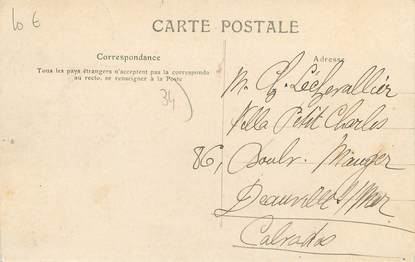 10 €
CARTE POSTALE
Correspondance
Tous les pays étrangers n'acceptent pas la correspondance
au recto, se renseigner à la Poste
Adresse
34
M. Ch. Léchevallier
Villa Petit Charles
86, Boulv. Mauger
Deauville s/ Mer
Calvados